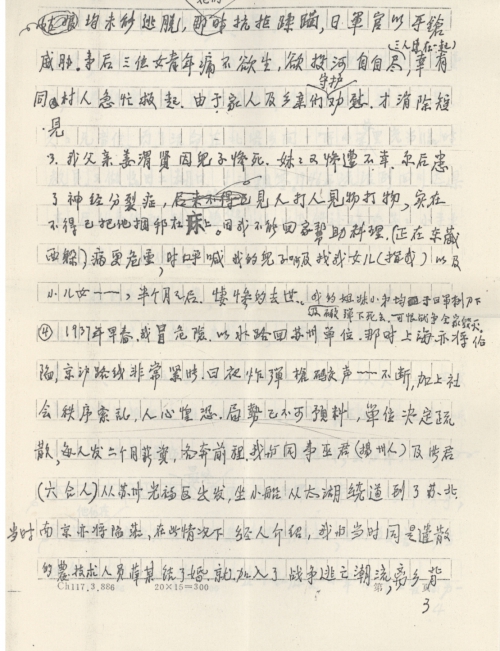 均未能逃脱，那时抗拒蹂躏，日军官以手鎗
(三人连在一起)
威胁。事后三位女青年痛不欲生，欲投河自尽，幸有
守护
同村人急忙救起。由于家人及乡亲们劝慰，才消除短
见
3. 我父亲姜渭贤因儿子惨死，妹又惨遭不幸，尔后患
了神经分裂症，后来不得已见人打人见物打物，实在
不得已把他捆绑在床上。因我不能回家帮助料理。(正在东藏
西躲) 病更危重，时呼喊我的儿子以及找我女儿(指我)以及
小儿女……，半月之后，悽惨的去世。我的姐妹小弟均
破弹下死去，可恨战争全家毁灭。
④ 1937年早春，我冒危险，以水路回苏州单位，那时上海亦将沦
陷，京沪路线非常紧张，日夜炸弹机枪声……不断，加上社
会秩序紊乱，人心惶恐，局势已不可预料，单位决定疏
散，每人发六个月薪资，各奔前程。我们同事巫君(扬州人)及
(六合人)从苏州光福区出发，坐小船从太湖绕道到了苏北，
当时南京亦将陷落，在此情况下，经人介绍，我和当时同是遣散
的农技术人员薛某结了婚，就加入了战争逃亡潮流，离乡背
Ch117.3.886 20×15=300 第 页
3